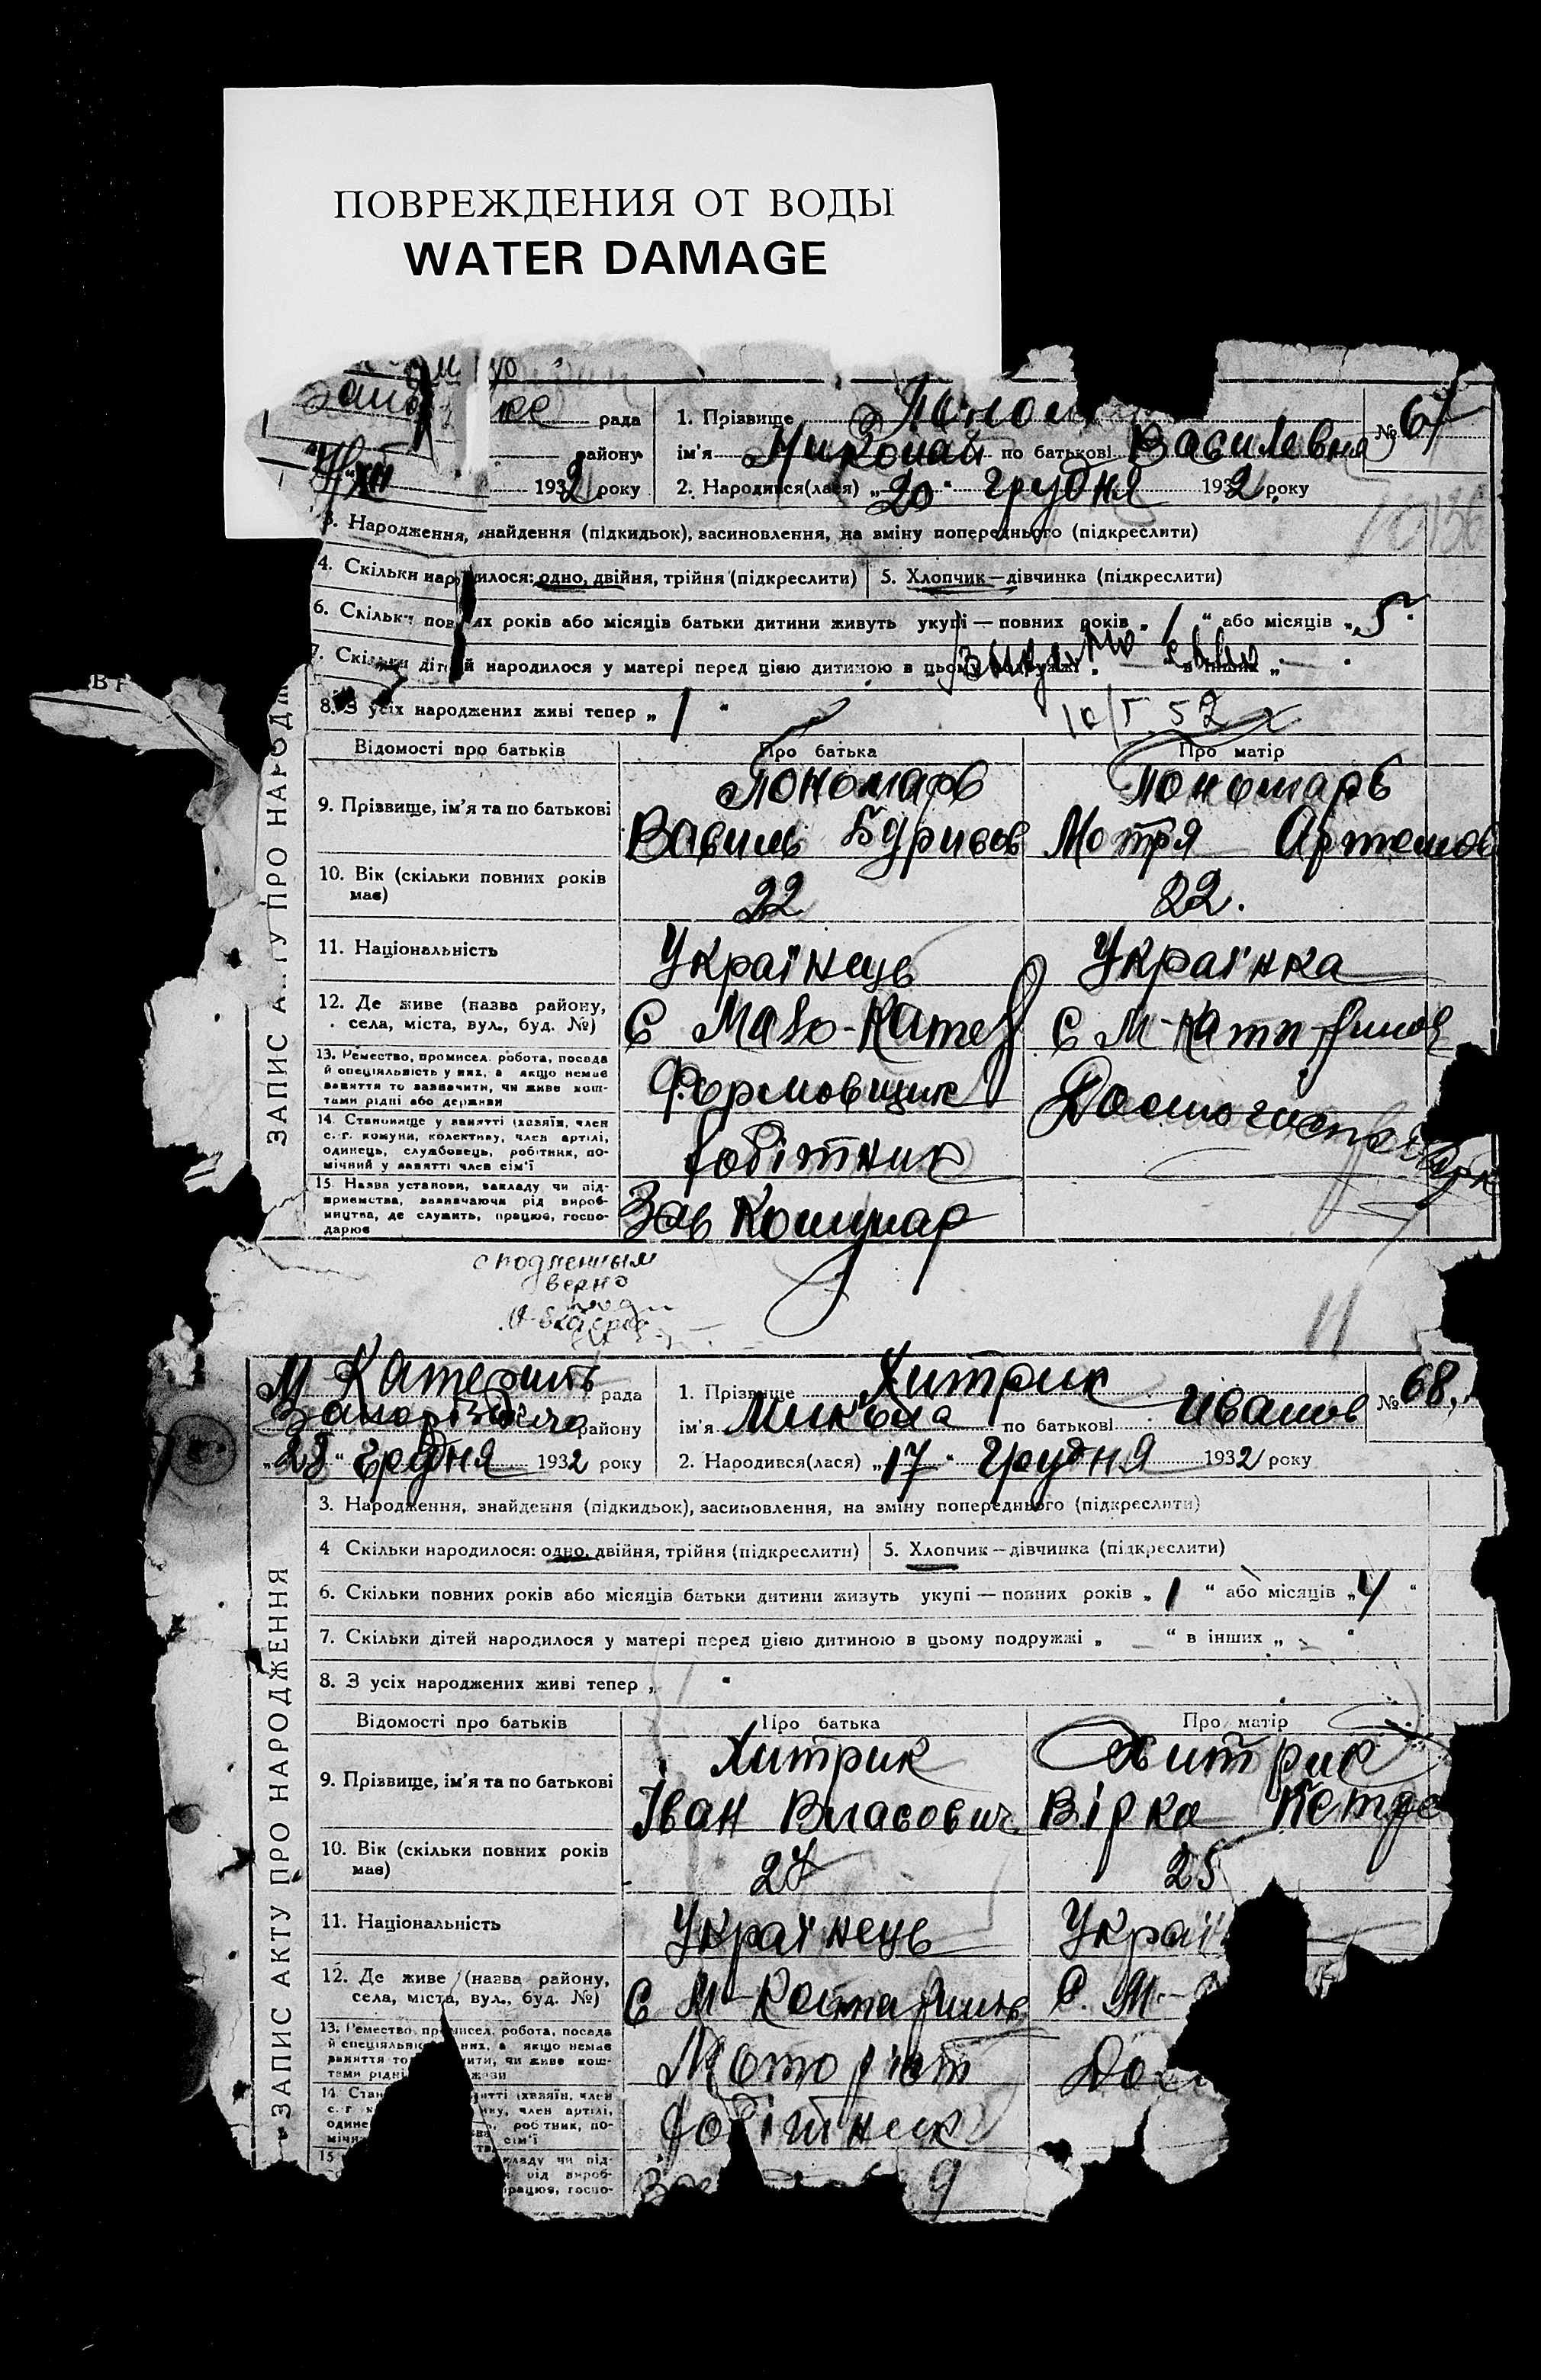 ПОВРЕЖДЕНИЯ ОТ ВОДЫ
WATER DAMAGE
рада
району
1932 року
1. Прізвище
№ 67
ім'я Миколай по батькові Василевна
2. Народився(лася) „20“ Грудня 1932 року
3. Народження, знайдення (підкидьок), засиновлення, на зміну попереднього (підкреслити)
4. Скільки народилося: одно, двійня, трійня (підкреслити)
5. Хлопчик—дівчинка (підкреслити)
6. Скільки повних років або місяців батьки дитини живуть укупі — повних років „1“ або місяців „5
7. Скільки дітей народилося у матері перед цією дитиною в цьому подружжі „ — “ в інших „ —
8. З усіх народжених живі тепер „1“
Відомості про батьків
Про батька
Про матір
9. Прізвище, ім'я та по батькові
Пономарь
Василь
Пономарь
Мотря Артемов
10. Вік (скільки повних років має)
22
22.
11. Національність
Українець
Українка
12. Де живе (назва району, села, міста, вул., буд. №)
С Мало-Катер
С М-Кати
13. Ремество, промисел, робота, посада й спеціяльність у них, а якщо немає заняття то зазначити, чи живе коштами рідні або держави
Формовщик
14. Становище у занятті (хазяїн, член с.-г. комуни, колективу, член артілі, одинець, службовець, робітник, помічний у занятті член сім'ї
робітник
15. Назва установи, закладу чи підприємства, зазначаючи рід виробництва, де служить, працює, господарює
Зав Комунар
с подленным
верно
ЗАПИС АКТУ ПРО НАРОДЖ
11
М Катеринів рада
району
„28“ Грудня 1932 року
1. Прізвище Хитрик
№ 68.
ім'я Микола по батькові Иванов
2. Народився(лася) „17“ Грудня 1932 року
3. Народження, знайдення (підкидьок), засиновлення, на зміну попереднього (підкреслити)
4 Скільки народилося: одно, двійня, трійня (підкреслити)
5. Хлопчик—дівчинка (підкреслити)
6. Скільки повних років або місяців батьки дитини живуть укупі — повних років „1“ або місяців „4“
7. Скільки дітей народилося у матері перед цією дитиною в цьому подружжі „ — “ в інших „ — “
8. З усіх народжених живі тепер „ “
Відомості про батьків
Про батька
Про матір
9. Прізвище, ім'я та по батькові
Хитрик
Іван Власович
Хитрик
Вірка Петро
10. Вік (скільки повних років має)
24
25
11. Національність
Українець
Украї
12. Де живе (назва району, села, міста, вул., буд. №)
С М-Катаринів
С. М-
13. Ремество, промисел, робота, посада
Моторіст
Дом
робітник
ЗАПИС АКТУ ПРО НАРОДЖЕННЯ